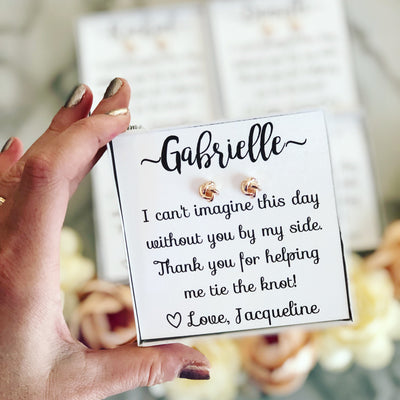 ~Gabrielle~
I can't imagine this day
without you by my side.
Thank you for helping
me tie the knot!
♡ Love, Jacqueline